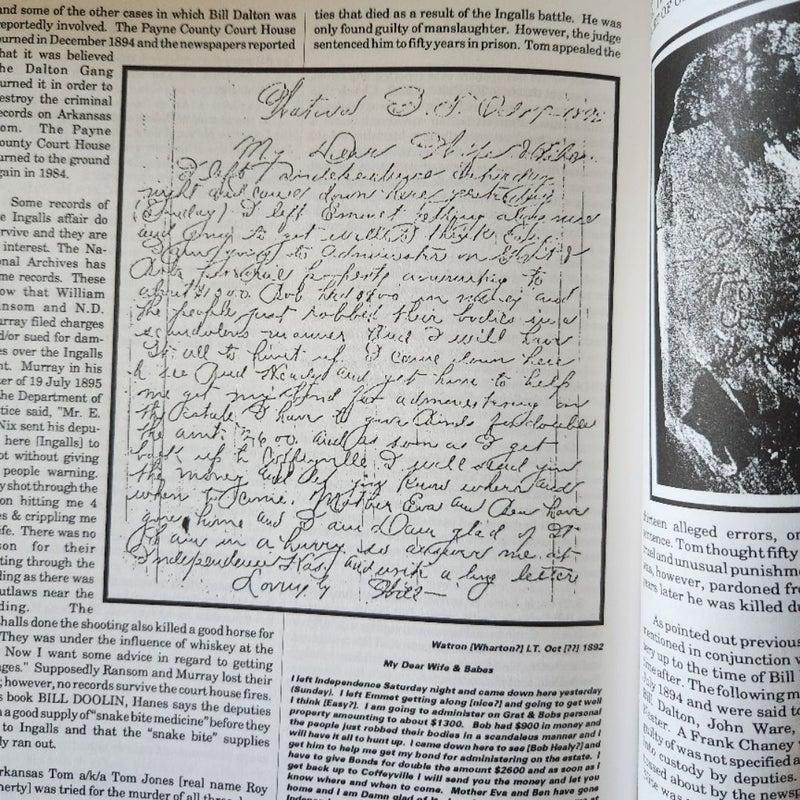 and some of the other cases in which Bill Dalton was
reportedly involved. The Payne County Court House
burned in December 1894 and the newspapers reported
that it was believed
the Dalton Gang
burned it in order to
destroy the criminal
records on Arkansas
Tom. The Payne
County Court House
burned to the ground
again in 1984.
Some records of
the Ingalls affair do
survive and they are
interest. The Na-
onal Archives has
me records. These
ow that William
ansom and N.D.
urray filed charges
d/or sued for dam-
es over the Ingalls
nt. Murray in his
er of 19 July 1895
the Department of
tice said, "Mr. E.
Nix sent his depu-
here [Ingalls] to
ot without giving
people warning.
y shot through the
on hitting me 4
es & crippling me
ife. There was no
son for their
ting through the
ding as there was
utlaws near the
ding. The
shalls done the shooting also killed a good horse for
They was under the influence of whiskey at the
Now I want some advice in regard to getting
ages." Supposedly Ransom and Murray lost their
; however, no records survive the court house fires.
s book BILL DOOLIN, Hanes says the deputies
a good supply of "snake bite medicine" before they
to Ingalls and that the "snake bite" supplies
ly ran out.
rkansas Tom a/k/a Tom Jones [real name Roy
herty] was tried for the murder of all three
ties that died as a result of the Ingalls battle. He was
only found guilty of manslaughter. However, the judge
sentenced him to fifty years in prison. Tom appealed the
My Dear Wife & Babes
I left Independence Saturday
night and came down here yesterday
(Sunday) I left Emmet getting along
and going to get well I think
I am going to Administer on Grat &
Bobs personal property amounting to
about $1300. Bob had $900 in money and
the people just robbed their bodies in a
scandalous manner and I will have
it all to hunt up. I came down here
to see and get him to help
me get my bond for administering on
the estate I have to give Bonds for double
the amt. $2600 and as soon as I get
back up to Coffeyville I will send you
the money and let you know when and
when to come. Mother Eva and Ben have
gone home and I am Damn glad of it
I am in a hurry so answer me at
Independence Kas. and write a long letter
Lovingly Will
Watron [Wharton?] I.T. Oct [??] 1892
My Dear Wife & Babes
I left Independence Saturday night and came down here yesterday
(Sunday). I left Emmet getting along [nice?] and going to get well
I think [Easy?]. I am going to administer on Grat & Bobs personal
property amounting to about $1300. Bob had $900 in money and
the people just robbed their bodies in a scandaleus manner and I
will have it all to hunt up. I came down here to see [Bob Healy?] and
get him to help me get my bond for administering on the estate. I
have to give Bonds for double the amount $2600 and as soon as I
get back up to Coffeyville I will send you the money and let you
know when and when to come. Mother Eva and Ben have gone
home and I am Damn glad of
thirteen alleged errors, on
sentence. Tom thought fifty
cruel and unusual punishme
was, however, pardoned fr
years later he was killed du
As pointed out previous
mentioned in conjunction w
ery up to the time of Bill
thereafter. The following m
July 1894 and were said to
Bill Dalton, John Ware,
ester. A Frank Chaney
guilty of was not specified a
into custody by deputies.
about by the newsp